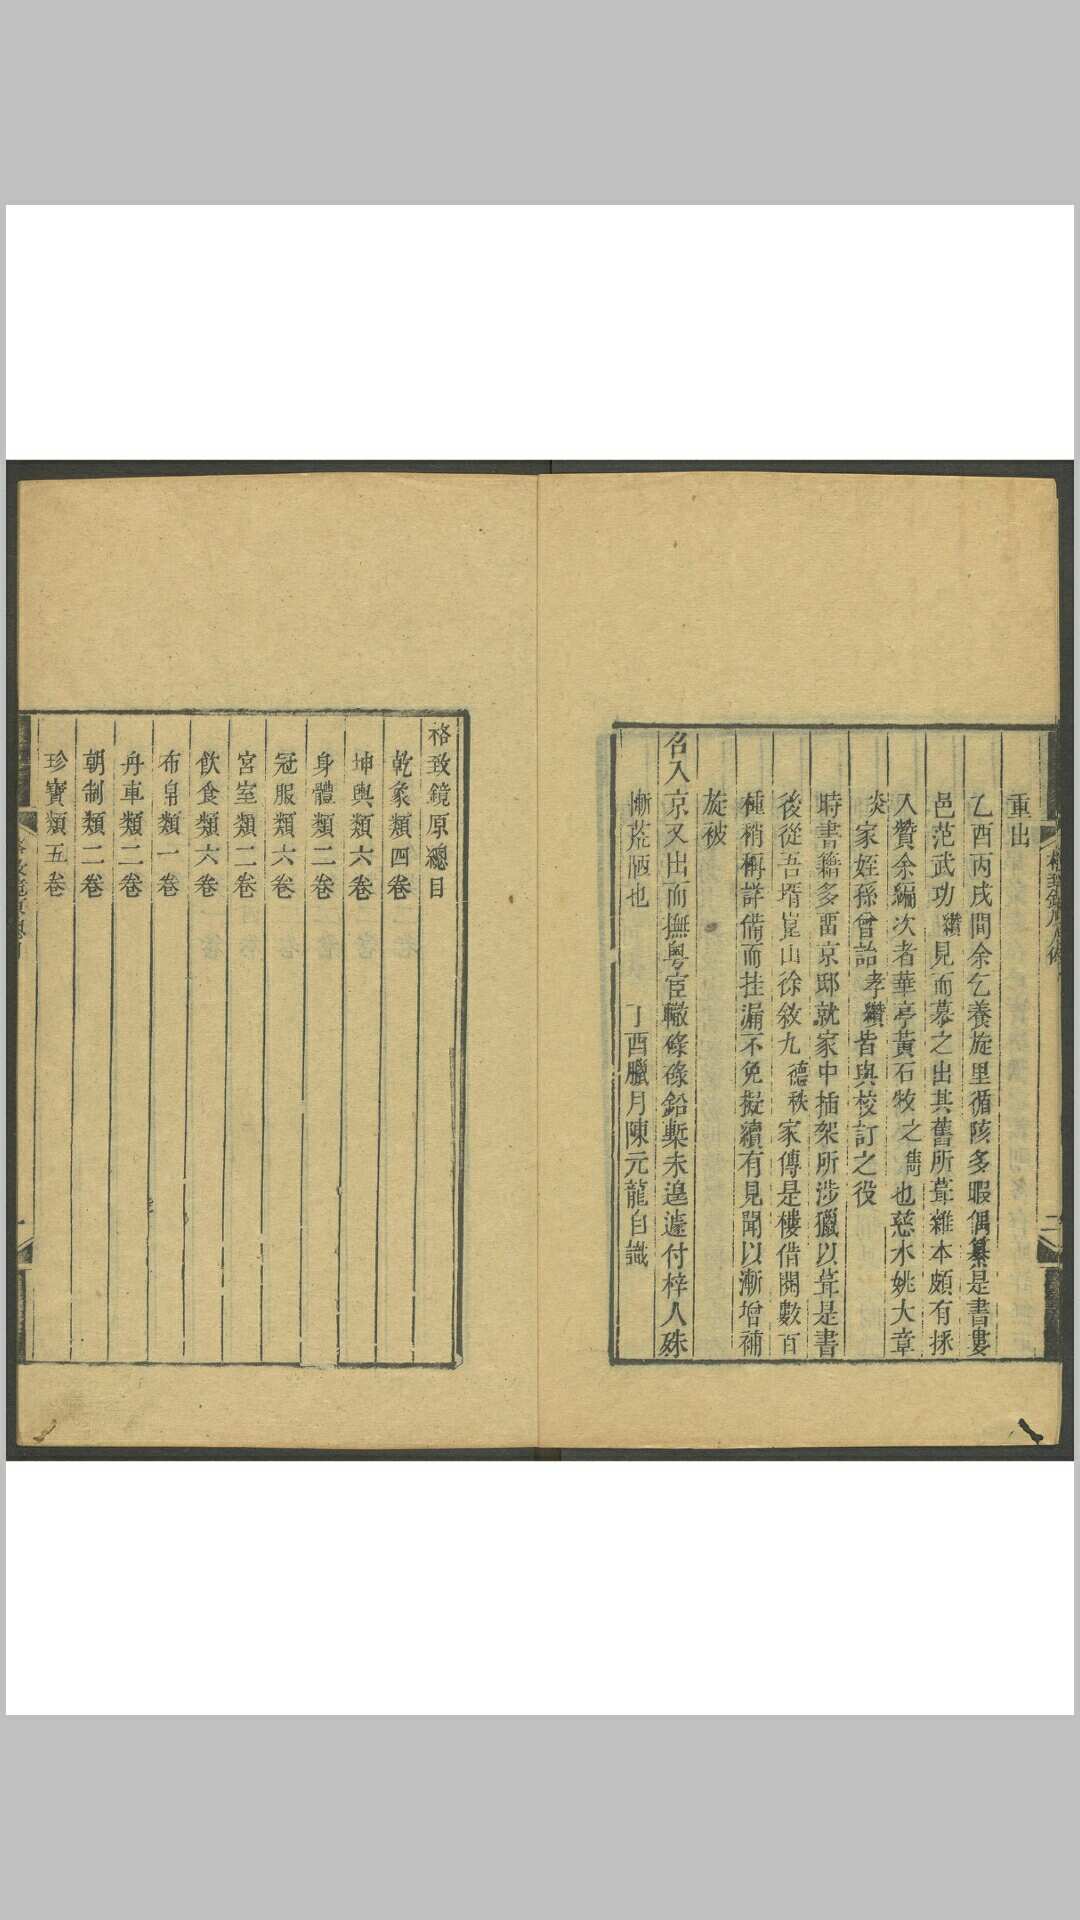 重出
乙酉丙戌間余乞養旋里循陔多暇偶纂是書婁
邑范武功纘見而慕之出其舊所葺雜本頗有採
入贊余編次者華亭黃石牧之雋也慈水姚大章
炎家姪孫曾詒孝纘皆與校訂之役
時書籍多畱京邸就家中插架所涉獵以葺是書
後從吾壻崑山徐敘九德秩家傳是樓借閱數百
種稍稱詳備而挂漏不免擬續有見聞以漸增補
旋被
名入京又出而撫粤宦轍條祿鉛槧未遑遽付梓人殊
慚荒陋也 丁酉臘月陳元龍自識
格致鏡原總目
乾象類四卷
坤輿類六卷
身體類二卷
冠服類六卷
宮室類二卷
飲食類六卷
布帛類一卷
舟車類二卷
朝制類二卷
珍寶類五卷